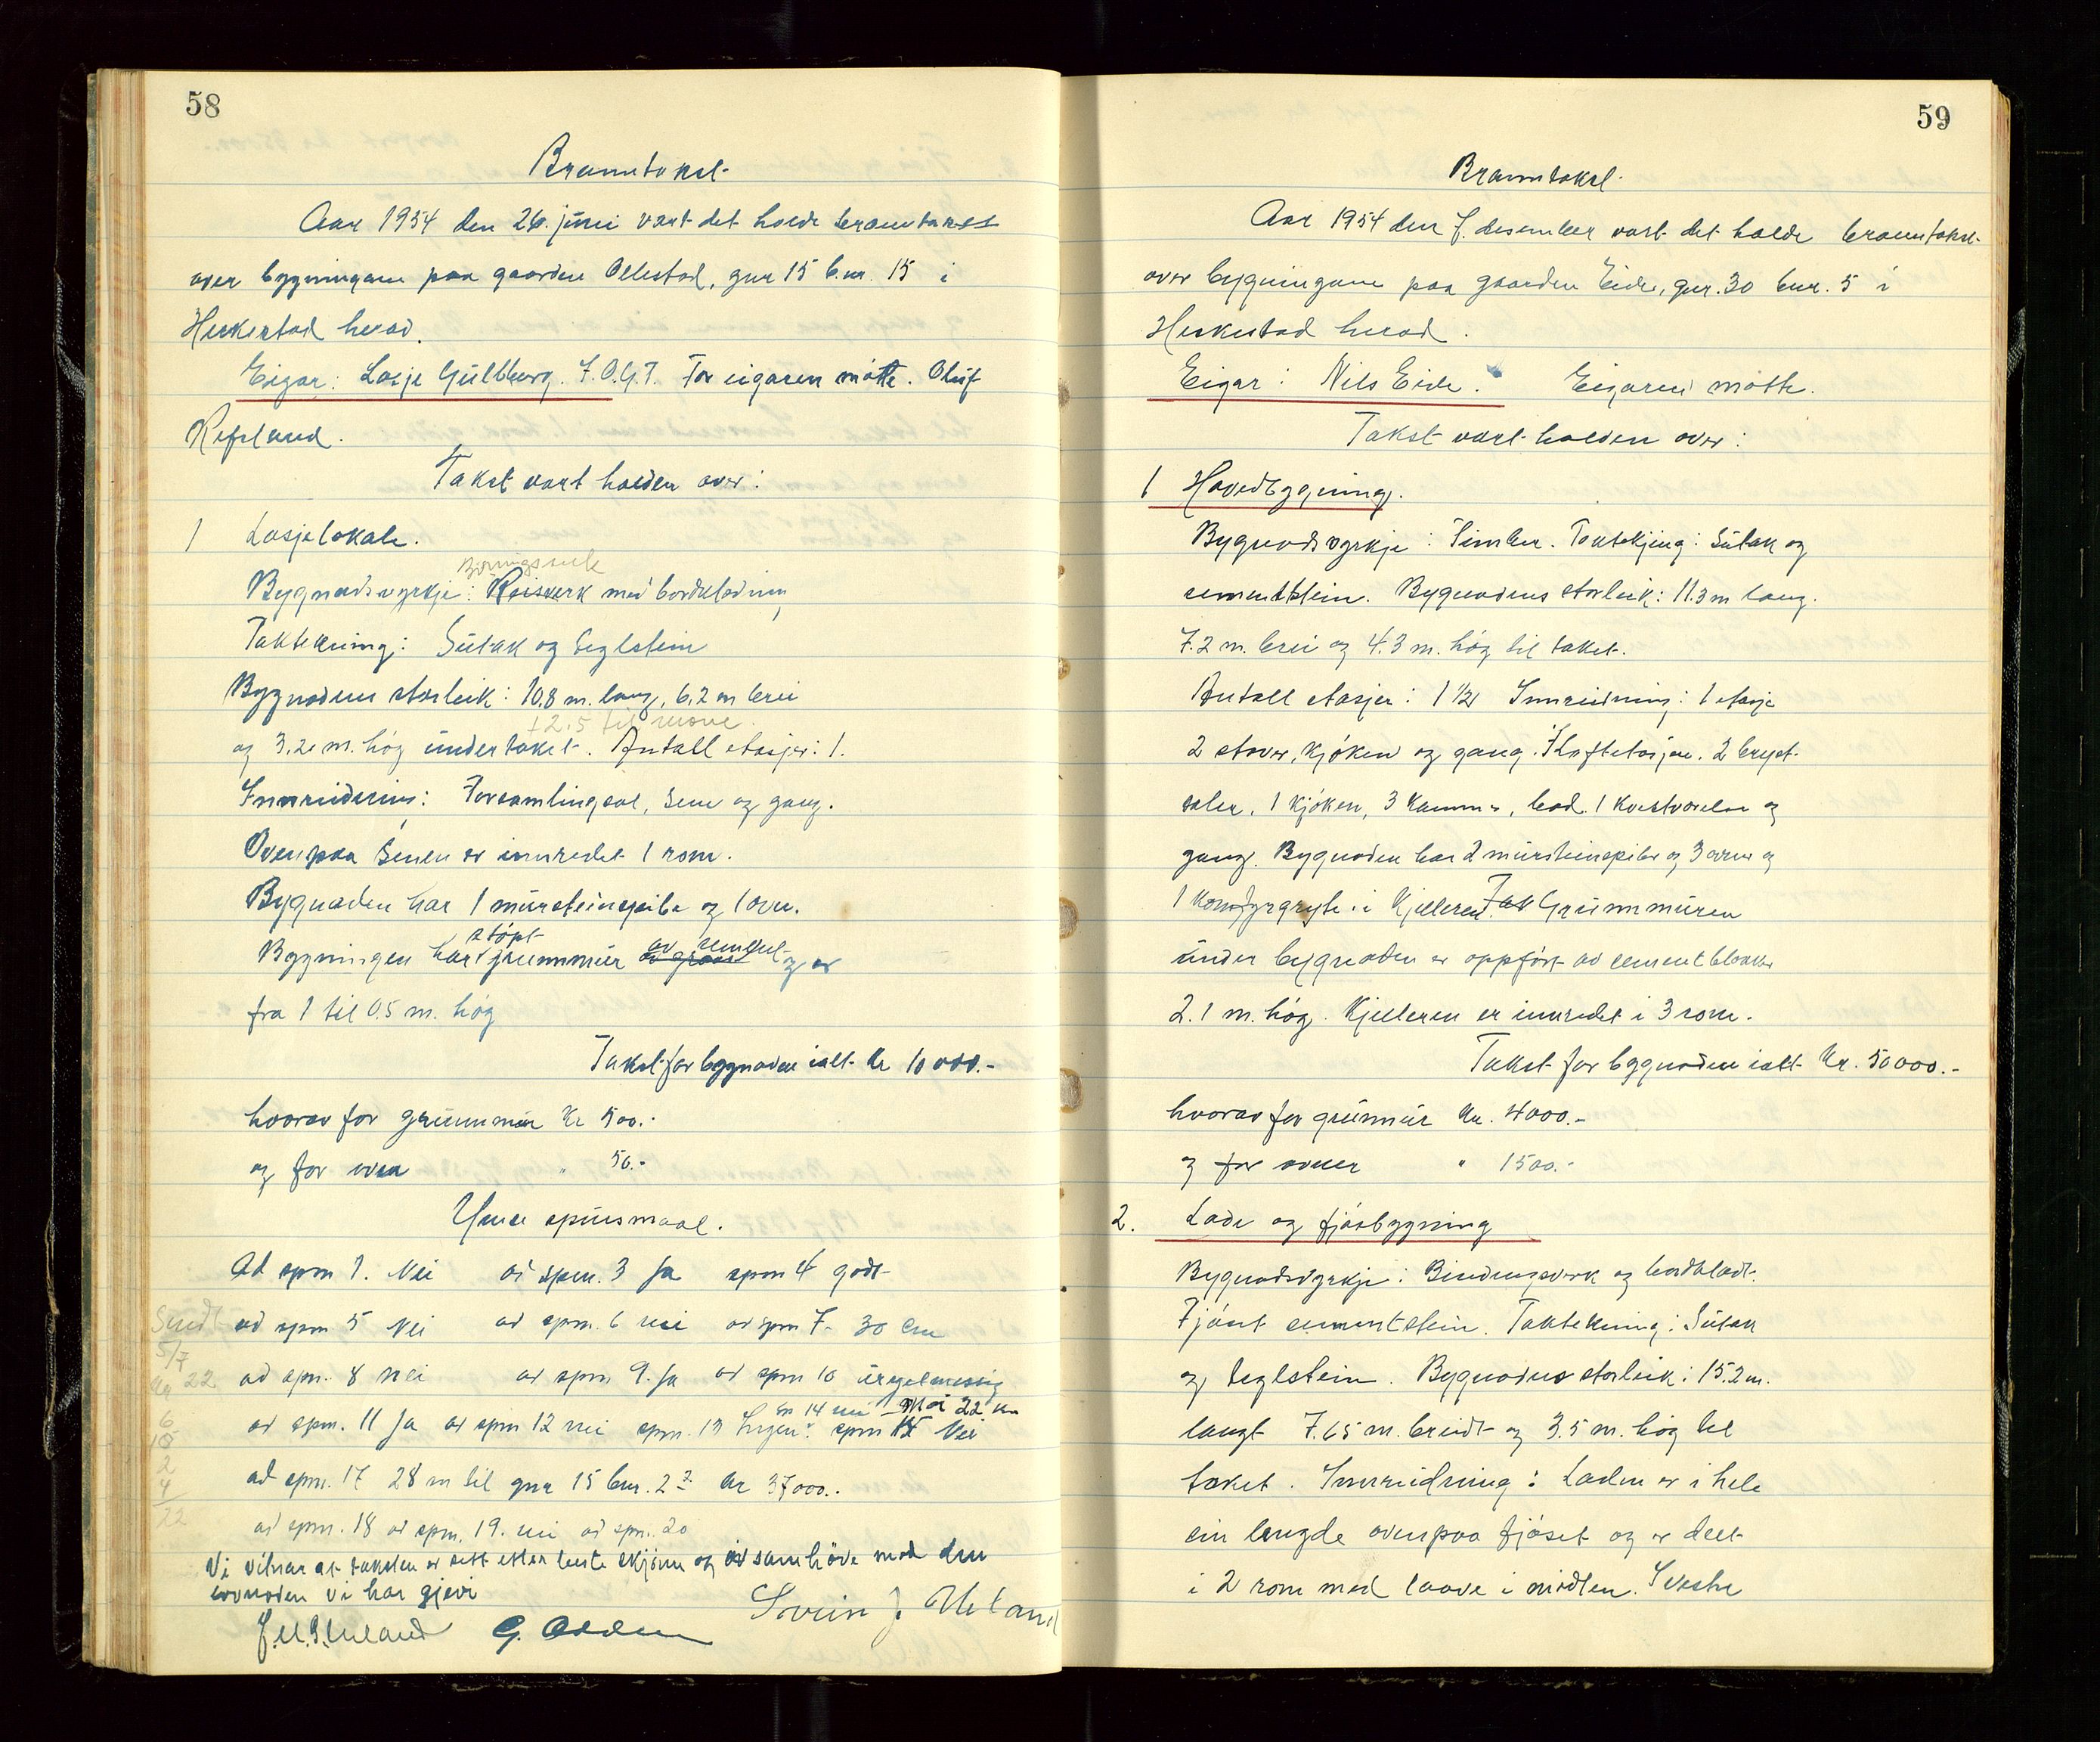 58
Branntakst
Aar 1954 den 26. juni vart det halde branntakst
over bygningane paa gaarden Ollestad, gnr 15 b.nr. 15 i
Heskestad herad.
Eigar: Losje Gullberg. I.O.G.T. For eigaren møtte. Oluf
Refsland.
Takst vart halden over:
1 Losjelokale.
Bindingsverk
Bygnadsvyrkje: Reisverk med bordkledning
Taktekning: Sutak og teglstein
Bygnadens storleik: 10.8 m. lang, 6.2 m brei
+2.5 til møne.
og 3.20 m. høg under taket. Antall etasjer: 1.
Innreidning: Forsamlingssal, sene og gang.
Ovenpaa senen er innredet 1 rom.
Bygnaden har 1 mursteinspibe og 1 ovn.
støpt av sement
Bygningen har grunnmur av graa og er
fra 1 til 0.5 m. høg
Takst for bygnaden ialt kr 10000.-
hvorav for grunnmur kr 500.-
og for ovn " 50.-
Ymse spursmaal.
Ad spm 1. Nei ad spm. 3 Ja spm 4 godt
Sendt ad spm 5 Nei ad spm. 6 nei ad spm 7- 30 cm
5/7
22 ad spm. 8 nei ad spm 9. Ja ad spm 10 uregelmessig
sp 14 nei Moi 22 km
ad spm. 11 Ja ad spm 12 nei spm. 13 Ingen. spm 15 Nei
6
10
2
4
22
ad spm. 17 28 m til gnr 15 bnr. 2 kr 37000.-
ad spm. 18 ad spm. 19. nei ad spm. 20
Vi vitnar at taksten er sett etter beste skjønn og i samhøve med den
lovnaden vi har gjevi
G. Odden Sverin J. Ueland

59
Branntakst
Aar 1954 den 7. desember vart det halde branntakst
over bygningane paa gaarden Eide, gnr. 30 bnr. 5 i
Heskestad herad.
Eigar: Nils Eide. Eigaren møtte.
Takst vart halden over:
1 Hovedbygning.
Bygnadsvyrkje: Timber. Taktekjing: Sutak og
cementstein. Bygnadens storleik: 11.3 m lang.
7.2 m. brei og 4.3 m. høg til taket.
Antall etasjer: 1 1/2 Innreidning: 1 etasje
2 stover, kjøken og gang. I loftetasjen. 2 bryst-
saler, 1 kjøken, 3 kammer, bad. 1 kvistværelse og
gang. Bygnaden har 2 mursteinspiber og 3 ovner og
1 komfyrgryte i kjelleren. Grunnmuren
under bygnaden er oppført av cementblokker
2.1 m. høg. Kjelleren er innredet i 3 rom.
Takst for bygnaden ialt kr. 50000.-
hvorav for grunmur kr. 4000.-
og for ovner " 1500.-
2. Lade og fjøsbygning
Bygnadsvyrkje: Bindingsverk og bordkledt.
Fjøset cementstein. Taktekning: Sutak
og teglstein. Bygnadens storleik: 15.2 m.
langt 7.65 m. breidt og 3.5 m. høg til
taket. Innreidning: Laden er i hele
sin lengde ovenpaa fjøset og er delt
i 2 rom med laave i midten. I vestre